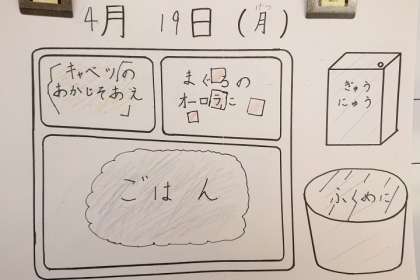 4月 19日 (月)
げつ
キャベツの
あかじそあえ
まぐろの
オーロラに
ぎゅう
にゅう
ごはん
ふくめに